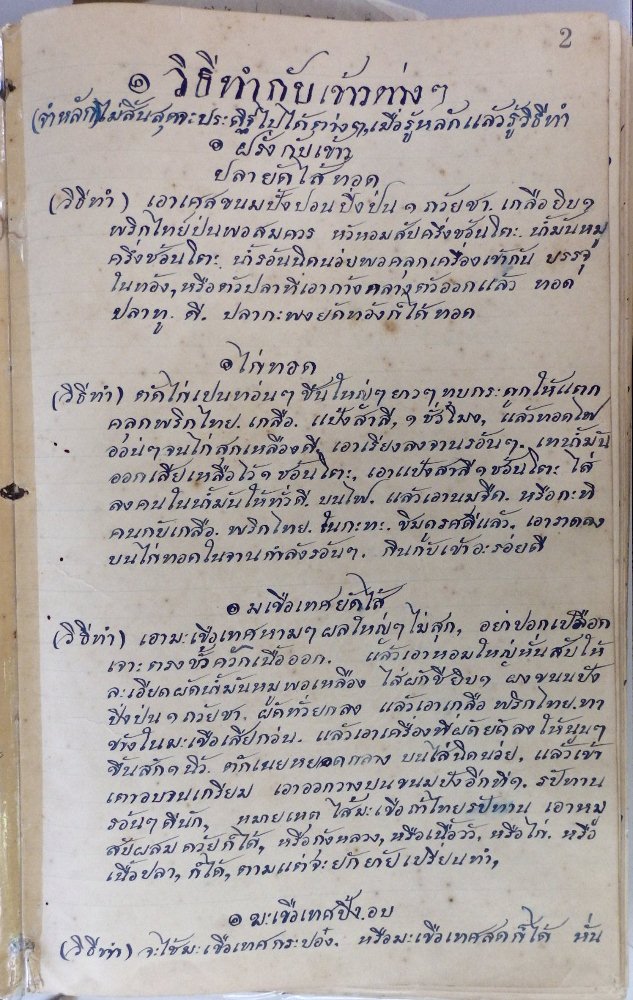 2
๏ วิธีทำกับเข้าต่างๆ
(จำหลัก)ไม่สิ้นสุดจะประดิฐไปได้ต่างๆ,เมื่อรู้หลักแล้วรู้วิธีทำ
๏ ฝรั่งกับเข้า
ปลายัดไส้ทอด
(วิธีทำ) เอาเศสขนมปังปอนปิ้งป่น ๑ ถ้วยชา. เกลือยิบ๑
พริกไทยป่นพอสมควร หัวหอมสับครึ่งช้อนโตะ. น้ำมันหมู
ครึ่งช้อนโตะ น้ำร้อนนิดน่อยพอคลุกเครื่องเข้ากัน บรรจุ
ในท้อง,หรือตัวปลาที่เอาก้างกลางตัวออกแล้ว ทอด
ปลาทู. ดี. ปลากะพงยัดท้องก็ได้ทอด
๏ ไก่ทอด
(วิธีทำ) ตัดไก่เปนท่อนๆ ชิ้นใหญ่ๆยาวๆทุบกระดูกให้แตก
คลุกพริกไทย. เกลือ. แป้งสาลี, ๑ ชั่วโมง, แล้วทอดไฟ
อ่อนๆจนไก่สุกเหลืองดี. เอาเรียงลงจานร้อนๆ. เทน้ำมัน
ออกเสียเหลือไว้ ๑ ช้อนโตะ, เอาแป้งสาลี ๑ ช้อนโตะ ใส่
ลงคนในน้ำมันให้ทั่วดี. บนไฟ. แล้วเอานมจืด. หรือกะทิ
คนกับเกลือ. พริกไทย. ในกะทะ. ชิมดูรศดีแล้ว. เอาราดลง
บนไก่ทอดในจานกำลังร้อนๆ. กินกับเข้าอะร่อยดี
๏ มเขือเทศยัดไส้
(วิธีทำ) เอามะเขือเทศหามๆผลใหญ่ๆไม่สุก, อย่าปอกเปลือก
เจาะตรงขั้วควักเนื้อออก. แล้วเอาหอมใหญ่หั่นสับให้
ละเอียดผัดน้ำมันหมูพอเหลือง ใส่ผักชียิบ๑ ผงขนมปัง
ปิ้งป่น ๑ ถ้วยชา. ผัดทั่วยกลง แล้วเอาเกลือ พริกไทย.ทา
ข้างในมะเขือเสียก่อน. แล้วเอาเครื่องที่ผัดยัดลงให้นูนๆ
ขึ้นสัก ๑ นิ้ว. ตักเนยหยอดกลาง บนไส่นิดน่อย, แล้วเข้า
เตาอบจนเกรียม เอาออกวางบนขนมปังอีกที๑. รปัทาน
ร้อนๆดีนัก, หมายเหตุ ไส้มะเขือถ้าไทยรปัทาน เอาหมู
สับผสมด้วยก็ได้, หรือกุ้งหลวง,หรือเนื้อวัว, หรือไก่. หรือ
เนื้อปลา, ก็ได้, ตามแต่จะยักย้ายเปรี่ยนทำ,
๏ มะเขือเทศปิ้ง.อบ
(วิธีทำ) จะใช้มะเขือเทศกระป๋อง. หรือมะเขือเทศสดก็ได้ หั่น